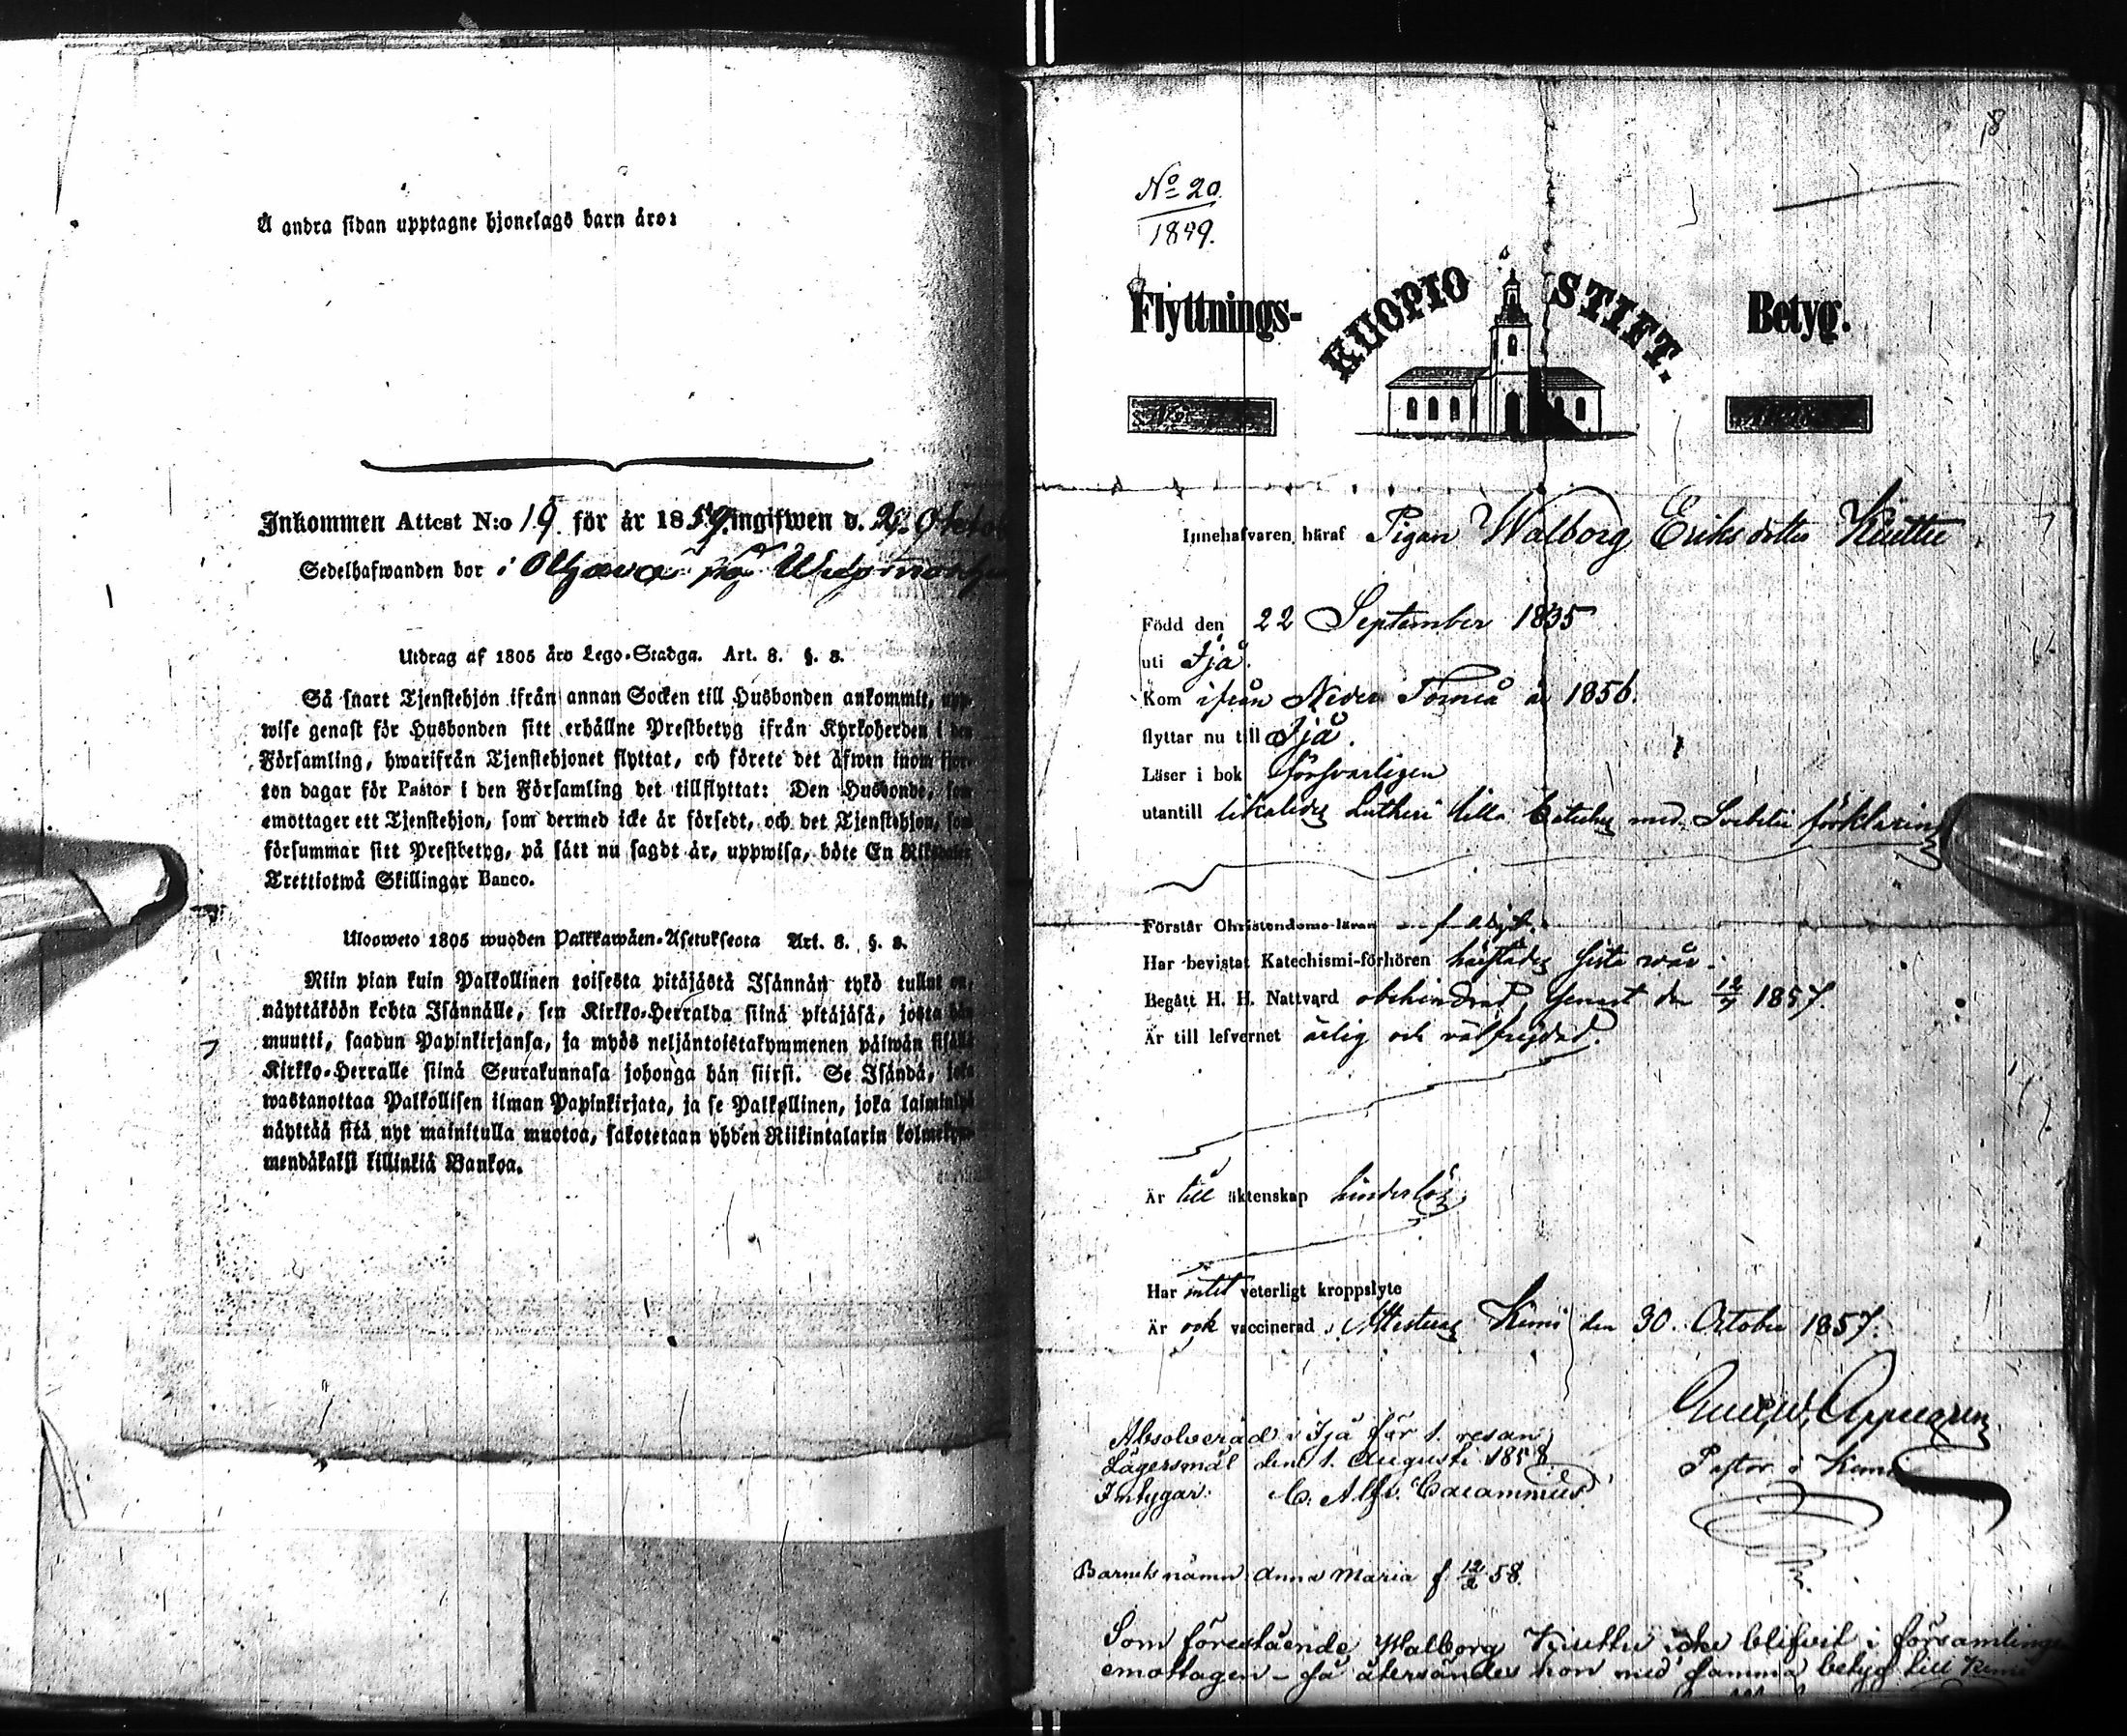 Å andra sidan upptagne hjonelags barn äro:
Inkommen Attest N:o 19 för år 1859, ingifwen d.
Sedelhafwanden bor i
Utdrag af 1805 års Lego-Stadga. Art. 8. §. 8.
Så snart Tjenstehjon ifrån annan Socken till Husbonden ankommit, upp-
wise genast för Husbonden sitt erhållne Prestbetyg ifrån Kyrkoherden i den
Församling, hwarifrån Tjenstehjonet flyttat, och förete det äfwen inom fjor-
ton dagar för Pastor i den Församling det tillflyttat: Den Husbonde, som
emottager ett Tjenstehjon, som dermed icke är försedt, och det Tjenstehjon, som
försummar sitt Prestbetyg, på sätt nu sagdt är, uppwisa, böte En Riksdaler
Trettiotwå Skillingar Banco.
Ulosweto 1805 wuoden Palkkawäen-Asetuksesta Art. 8. §. 8.
Niin pian kuin Palkollinen toisesta pitäjästä Isännän tykö tullut on,
näyttäköön kohta Isännälle, sen Kirkko-Herralda siinä pitäjäsä, josta hän
muutti, saadun Papinkirjansa, ja myös neljäntoistakymmenen päiwän sisällä
Kirkko-Herralle siinä Seurakunnasa johonga hän siirsi. Se Isändä, joka
wastanottaa Palkollisen ilman Papinkirjata, ja se Palkollinen, joka laiminlyö
näyttää sitä nyt mainitulla muotoa, sakotetaan yhden Riikintalarin kolmekym-
mendäkaksi killinkiä Bankoa.
8
No 20
1849.
Flyttnings- KUOPIO STIFT. Betyg.
Innehafvaren häraf Pigan Walborg Eriksdotter Kiuttu
Född den 22 September 1835
uti Ijå.
Kom ifrån Neder Torneå år 1856.
flyttar nu till Ijå.
Läser i bok försvarligen
utantill likaledes Lutheri lilla Cateches med Svebelii förklaring
Förstår Christendoms-läran
Har bevistat Katechismi-förhören härstädes sista vår.
Begått H. H. Nattvard obehindrad, senast den 12/7 1857.
Är till lefvernet ärlig och välfrejdad.
Är till äktenskap hinderlös
Har intet veterligt kroppslyte
Är ock vaccinerad, Attesteras Kemi den 30. October 1857.
Appelgren
Pastor i Kemi
Absolverad i Ijå för 1. resan
Lägersmål den 1. Augusti 1858
Intygar: C. Alfr. Cacammius
Barnets namn Anna Maria f 12/2 58.
Som förestående Walborg Kiuttu icke blifvit i församlingen
emottagen - så återsändes hon med samma betyg till Kemi